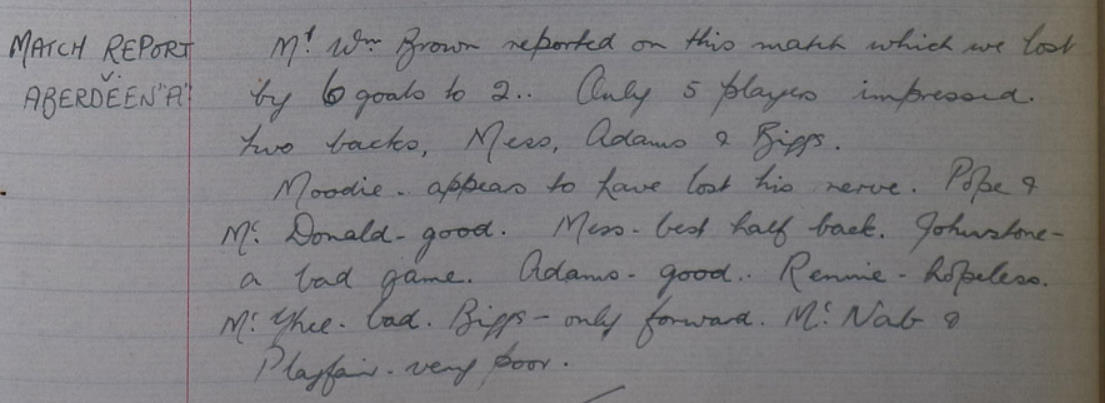 MATCH REPORT
V.
ABERDEEN "A"
Mr Wm Brown reported on this match which we lost
by 6 goals to 2.. Only 5 players impressed.
two backs, Mess, Adams & Biggs.
Moodie - appears to have lost his nerve. Pope &
Mc Donald - good. Mess - best half back. Johnstone -
a bad game. Adams - good.. Rennie - hopeless.
Mc Ghee - bad. Biggs - only forward. Mc Nab &
Playfair - very poor.